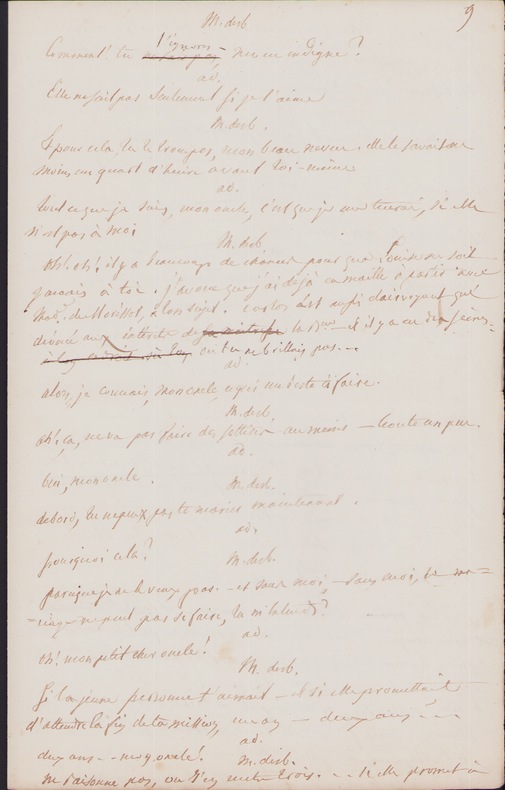 9
M. derb
l'ignores
Comment! tu ne sais pas mon indigne?
ad.
Elle ne sait pas seulement si je l'aime
M. derb.
pour cela, tu te trompes, mon beau neveu. elle le savait au
moins un quart d'heure avant toi-même
ad.
tout ce que je sais, mon oncle, c'est que je me tuerai, si elle
n'est pas à moi
M. derb.
oh! oh! il y a beaucoup de chances pour que Louise ne soit
jamais à toi. j'avoue que j'ai déjà eu maille à partir avec
Mad. de à son sujet. est aussi clairvoyant que
dévoué aux intérêts de la - et il y a eu des
où tu ne brillais pas...
ad.
alors, je connais, mon oncle, ce qui me reste à faire.
M. derb.
oh! ça, ne va pas faire des sottises au moins - écoute un peu.
ad.
oui, mon oncle.
M. derb.
d'abord, tu ne peux pas te marier maintenant.
ad.
pourquoi cela?
M. derb.
parceque je ne le veux pas. - et sans moi - sans moi, le ma-
-riage ne peut pas se faire, tu m'entends?
ad.
oh! mon petit cher oncle!
M. derb.
Si la jeune personne t'aimait - et si elle promettait
d'attendre la fin de ta mission, un an - deux ans...
ad.
deux ans - mon oncle!
M. derb.
ne raisonne pas, ou j'en mets trois. ... Si elle promet à